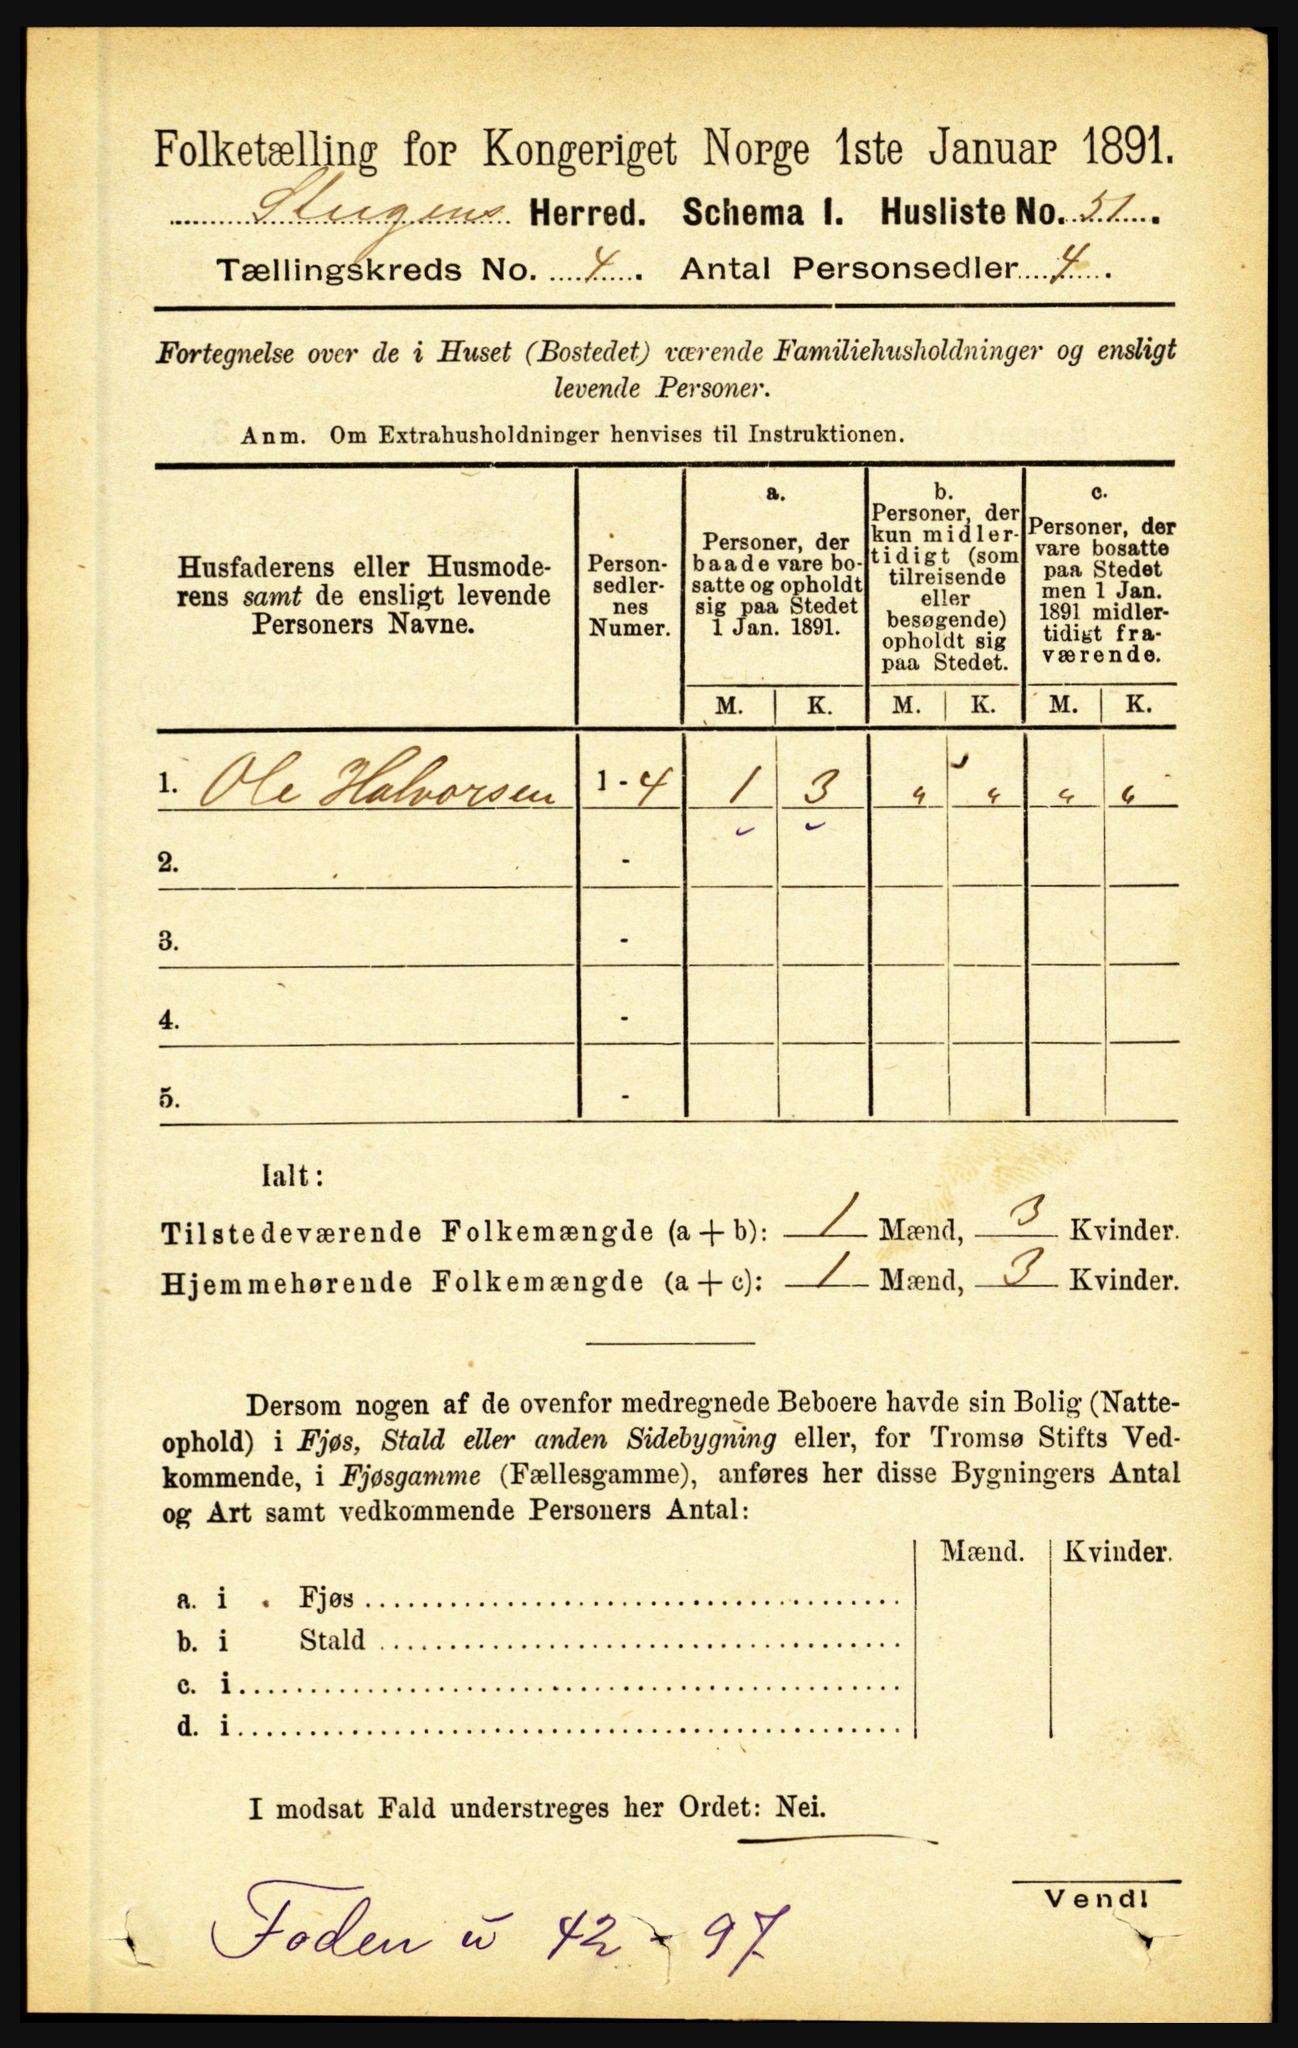 Folketælling for Kongeriget Norge 1ste Januar 1891.
Stegens Herred. Schema I. Husliste No. 51.
Tællingskreds No. 4. Antal Personsedler 4.
Fortegnelse over de i Huset (Bostedet) værende Familiehusholdninger og ensligt
levende Personer.
Anm. Om Extrahusholdninger henvises til Instruktionen.
Husfaderens eller Husmode-
rens samt de ensligt levende
Personers Navne.
Person-
sedler-
nes
Numer.
a.
Personer, der
baade vare bo-
satte og opholdt
sig paa Stedet
1 Jan. 1891.
b.
Personer, der
kun midler-
tidigt (som
tilreisende
eller
besøgende)
opholdt sig
paa Stedet.
c.
Personer, der
vare bosatte
paa Stedet
men 1 Jan.
1891 midler-
tidigt fra-
værende.
M. K. M. K. M. K.
1. Ole Halvorsen 1 - 4 1 3 " " " "
2. -
3. -
4. -
5. -
Ialt:
Tilstedeværende Folkemængde (a + b): 1 Mænd, 3 Kvinder.
Hjemmehørende Folkemængde (a + c): 1 Mænd, 3 Kvinder.
Dersom nogen af de ovenfor medregnede Beboere havde sin Bolig (Natte-
ophold) i Fjøs, Stald eller anden Sidebygning eller, for Tromsø Stifts Ved-
kommende, i Fjøsgamme (Fællesgamme), anføres her disse Bygningers Antal
og Art samt vedkommende Personers Antal:
Mænd. Kvinder.
a. i Fjøs
b. i Stald
c. i
d. i
I modsat Fald understreges her Ordet: Nei.
Vend!
42 - 97